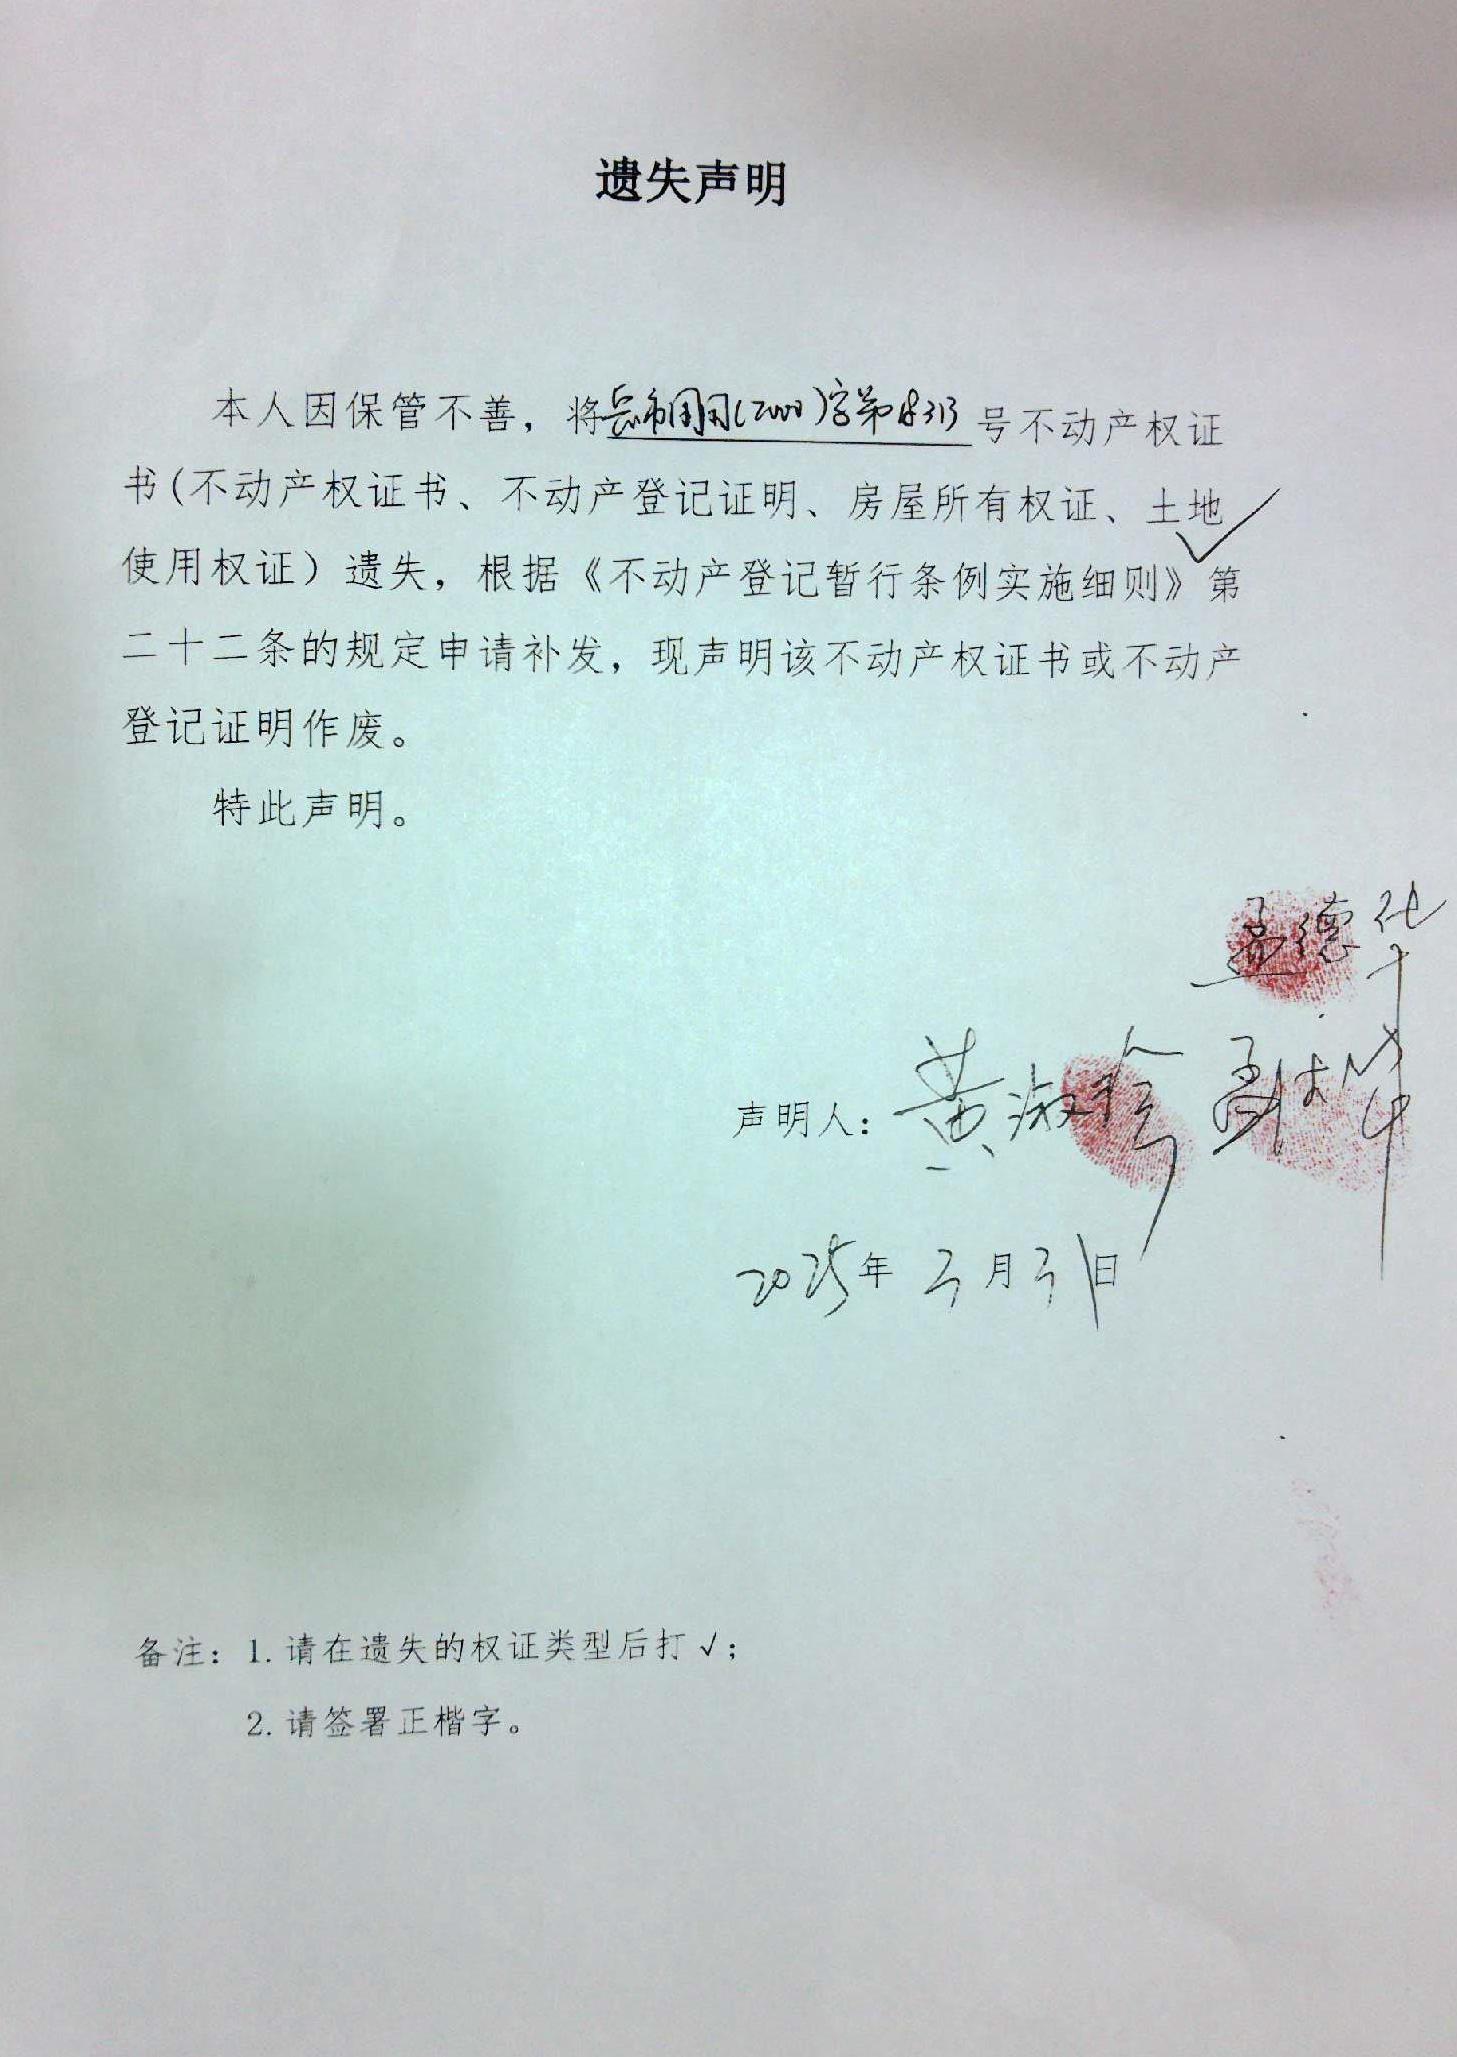 遗失声明
本人因保管不善，将岳市国用(2000)字第 313号不动产权证
书(不动产权证书、不动产登记证明、房屋所有权证、土地√
使用权证）遗失，根据《不动产登记暂行条例实施细则》第
二十二条的规定申请补发，现声明该不动产权证书或不动产
登记证明作废。
特此声明。
孟德华
声明人：黄淑珍
2025年3月31日
备注：1. 请在遗失的权证类型后打√；
2. 请签署正楷字。